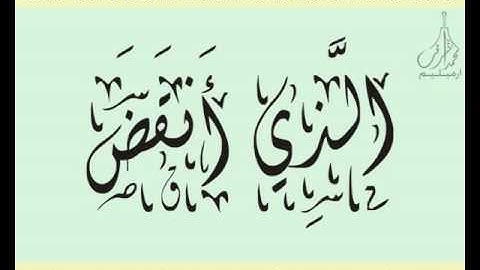 الَّذِي أَنقَضَ